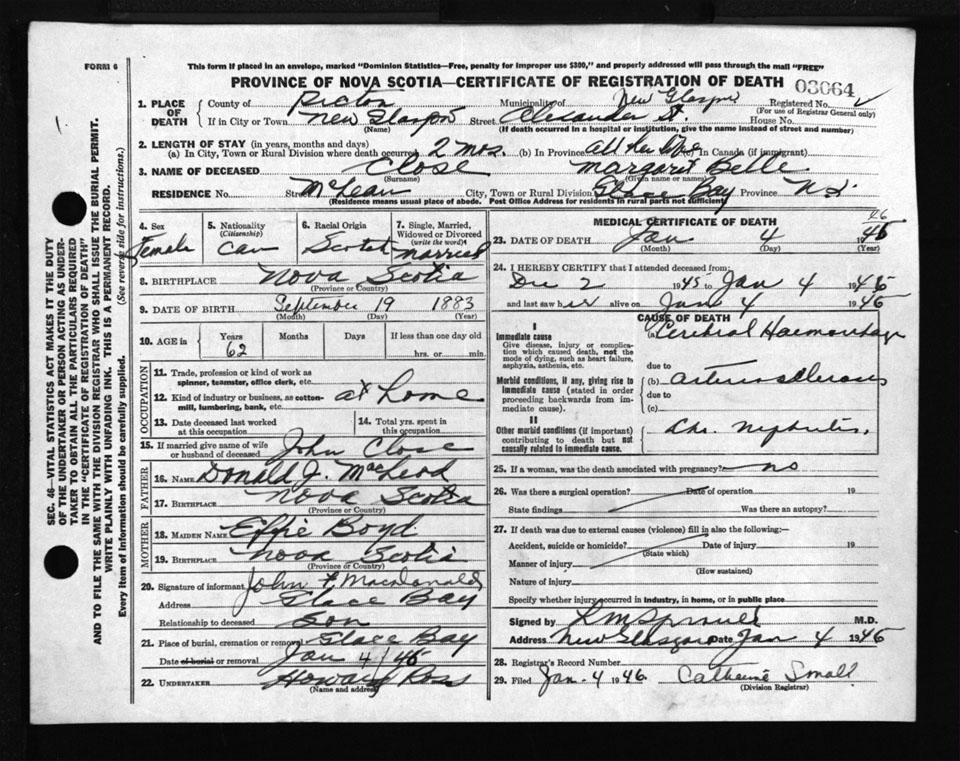 FORM 6
This form if placed in an envelope, marked "Dominion Statistics—Free, penalty for improper use $300," and properly addressed will pass through the mail "FREE"
PROVINCE OF NOVA SCOTIA—CERTIFICATE OF REGISTRATION OF DEATH
03064
SEC. 46—VITAL STATISTICS ACT MAKES IT THE DUTY
OF THE UNDERTAKER OR PERSON ACTING AS UNDER-
TAKER TO OBTAIN ALL THE PARTICULARS REQUIRED
IN THE "CERTIFICATE OF REGISTRATION OF DEATH"
AND TO FILE THE SAME WITH THE DIVISION REGISTRAR WHO SHALL ISSUE THE BURIAL PERMIT.
WRITE PLAINLY WITH UNFADING INK. THIS IS A PERMANENT RECORD.
Every item of information should be carefully supplied. (See reverse side for instructions.)
1. PLACE OF DEATH
County of Pictou Municipality of New Glasgow Registered No.
(For use of Registrar General only)
If in City or Town New Glasgow Street Alexander St. House No.
(Name) (If death occurred in a hospital or institution, give the name instead of street and number)
2. LENGTH OF STAY (in years, months and days)
(a) In City, Town or Rural Division where death occurred 2 mos. (b) In Province all her life (c) In Canada (if immigrant)
3. NAME OF DECEASED Close Margaret Belle
(Surname) (Given name or names)
RESIDENCE No. Street McLean City, Town or Rural Division Glace Bay Province N.S.
(Residence means usual place of abode. Post Office Address for residents in rural parts not sufficient)
4. Sex
Female
5. Nationality
(Citizenship)
Can
6. Racial Origin
Scotch
7. Single, Married,
Widowed or Divorced
(write the word)
Married
8. BIRTHPLACE Nova Scotia
(Province or Country)
9. DATE OF BIRTH September 19 1883
(Month) (Day) (Year)
10. AGE in
Years Months Days If less than one day old
62 hrs. or min.
OCCUPATION
11. Trade, profession or kind of work as
spinner, teamster, office clerk, etc.
12. Kind of industry or business, as cotton-
mill, lumbering, bank, etc. at Home
13. Date deceased last worked
at this occupation
14. Total yrs. spent in
this occupation
15. If married give name of wife
or husband of deceased John Close
FATHER
16. NAME Donald J. MacLeod
17. BIRTHPLACE Nova Scotia
(Province or Country)
MOTHER
18. MAIDEN NAME Effie Boyd
19. BIRTHPLACE Nova Scotia
(Province or Country)
20. Signature of informant John F. Macdonald
Address Glace Bay
Relationship to deceased Son
21. Place of burial, cremation or removal Glace Bay
Date of burial or removal Jan 4/46
22. UNDERTAKER Howard Ross
(Name and address)
MEDICAL CERTIFICATE OF DEATH
23. DATE OF DEATH Jan 4 1946
(Month) (Day) (Year)
24. I HEREBY CERTIFY that I attended deceased from:
Dec 2 1945 to Jan 4 1946
and last saw her alive on Jan 4 1946
CAUSE OF DEATH
I
Immediate cause
Give disease, injury or complica-
tion which caused death, not the
mode of dying, such as heart failure,
asphyxia, asthenia, etc.
(a) Cerebral Haemorrhage
due to
Morbid conditions, if any, giving rise to
immediate cause (stated in order
proceeding backwards from im-
mediate cause).
(b) arteriosclerosis
due to
(c)
II
Other morbid conditions (if important)
contributing to death but not
causally related to immediate cause.
Chr. Nephritis
25. If a woman, was the death associated with pregnancy? no
26. Was there a surgical operation? Date of operation 19
State findings Was there an autopsy?
27. If death was due to external causes (violence) fill in also the following:—
Accident, suicide or homicide? Date of injury 19
(State which)
Manner of injury
(How sustained)
Nature of injury
Specify whether injury occurred in industry, in home, or in public place
Signed by M.D.
Address New Glasgow Date Jan 4 1946
28. Registrar's Record Number
29. Filed Jan. 4 1946 Catherine Small
(Division Registrar)